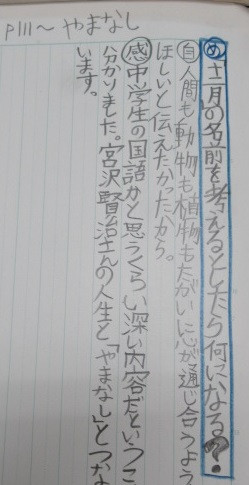 P111〜 やまなし
め 「十二月」の名前を考えるとしたら何になるか?
自 人間も動物も植物もたがいに心が通じ合うよう
ほしいと伝えたかったから。
感 中学生の国語かと思うくらい深い内容だというこ
分かりました。宮沢賢治さんの人生と「やまなし」とつな
います。